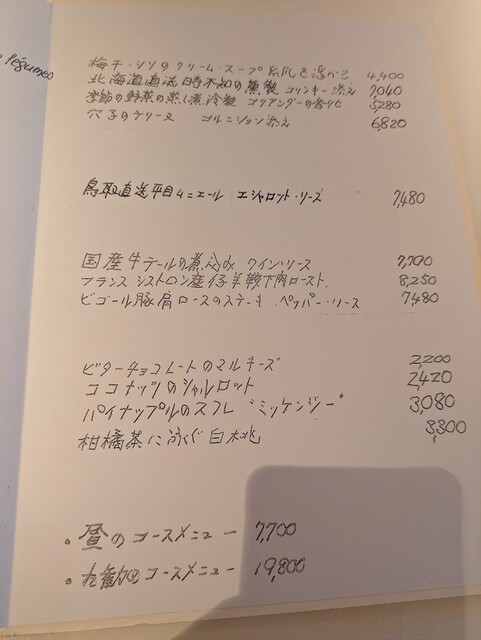 légumes
梅干・シソのクリーム・スープ 4,400
北海道直送時不知の燻製 コリンキー添え 7,040
季節の野菜の蒸し煮冷製 コリアンダーの香り 5,280
穴子のテリーヌ コルニション添え 6,820
鳥取直送平目ムニエール エシャロット・ソース 7,480
国産牛テールの煮込み ワインソース 7,700
フランス シストロン産仔羊鞍下肉ロースト 8,250
ビゴール豚肩ロースのステーキ ペッパー・ソース 7,480
ビターチョコレートのマルキーズ 2,200
ココナッツのシャルロット 2,420
パイナップルのスフレ "ミッケンジー" 3,080
柑橘茶に泳ぐ白桃 3,300
・昼のコースメニュー 7,700
・のコースメニュー 19,800